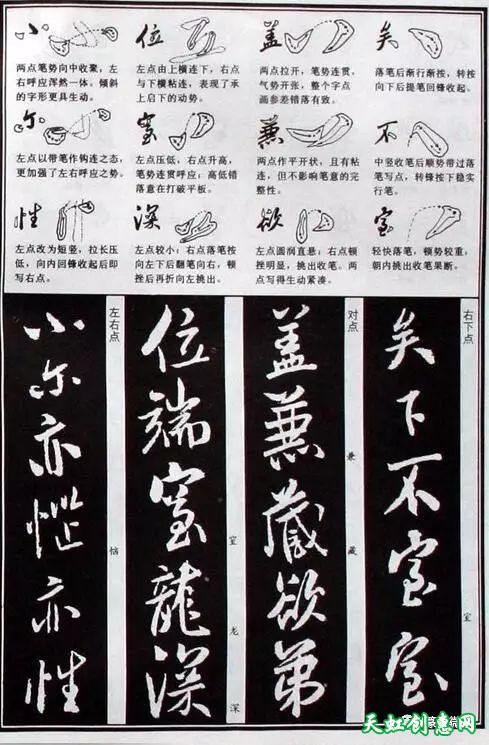 小
两点笔势向中收聚，左
右呼应浑然一体。倾斜
的字形更具生动。
位
左点由上横连下，右点
与下横粘连，表现了承
上启下的动势。
盖
两点拉开，笔势连贯，
气势开张，整个字点
画参差错落有致。
矣
落笔后渐行渐按，转按
向下后提笔回锋收起。
尔
左点以带笔作钩连之态，
更加强了左右呼应之势。
室
左点压低，右点升高，
笔势连贯呼应；高低错
落意在打破平板。
兼
两点作平开状，且有粘
连，但不影响笔意的完
整性。
不
中竖收笔后顺势带过落
笔写点，转锋按下稳实
行笔。
性
左点改为短竖，拉长压
低，向内回锋收起后即
写右点。
深
左点较小；右点落笔按
向左下后翻笔向右，顿
挫后再折向左挑出。
欲
左点圆润直悬；右点顿
挫明显，挑出收笔。两
点写得生动紧凑。
室
轻快落笔，顿势较重，
朝内挑出收笔果断。
右下点
矣下不室室
室
对点
盖兼藏欲弟
兼 藏
位端室龍深
室 龙 深
左右点
小尔亦惱亦性
恼
天虹创意网